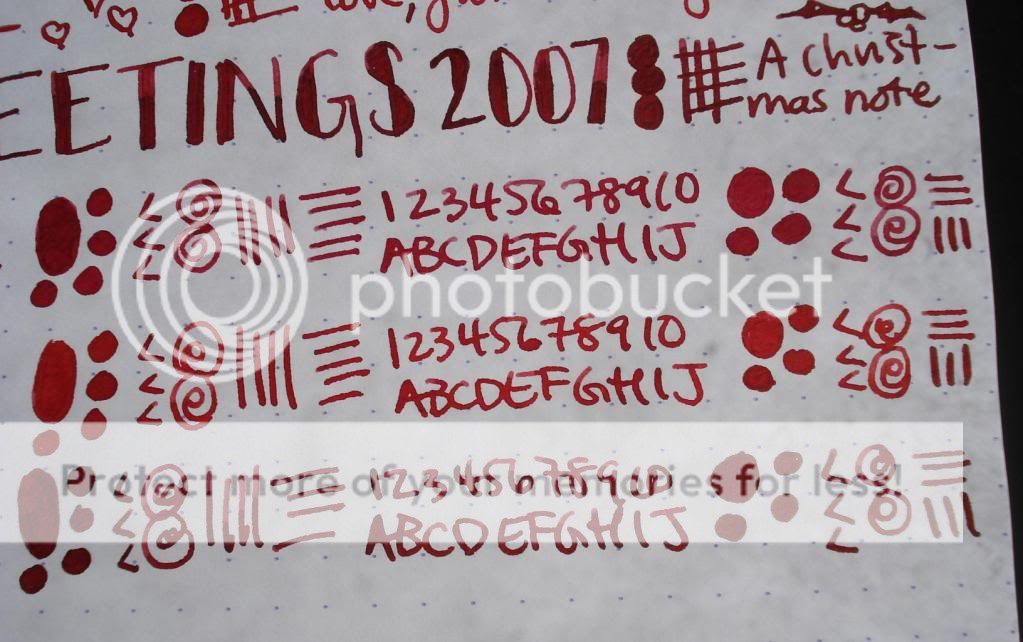 love,
EETINGS 2007
A christ-
mas note
12345678910
ABCDEFGHIJ
photobucket
12345678910
ABCDEFGHIJ
Protect more of your memories for less!
12345678910
ABCDEFGHIJ